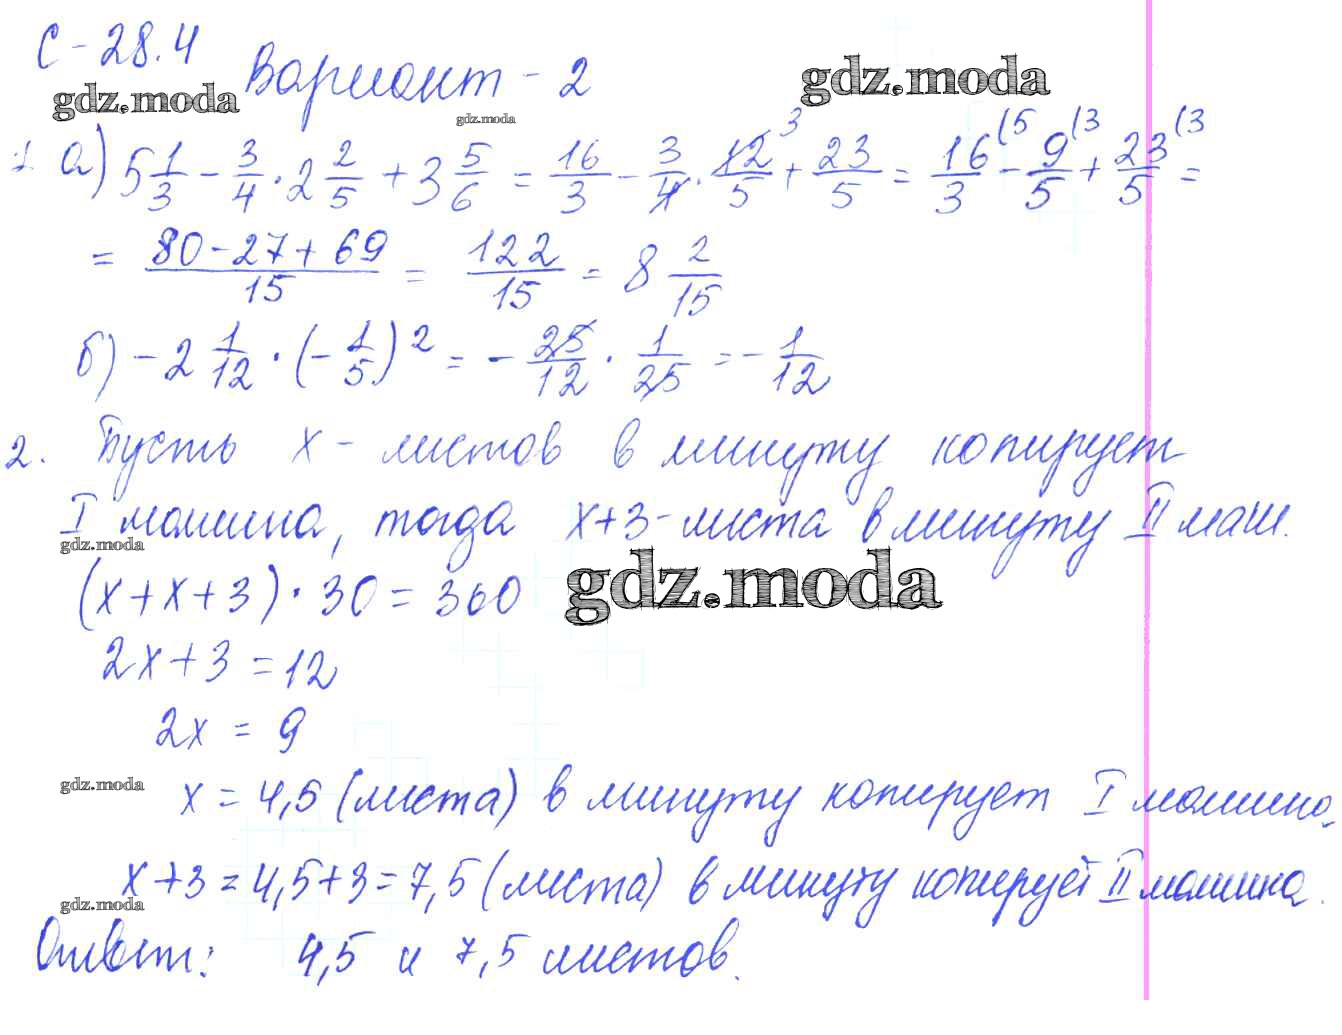 С-28.4
Вариант - 2
gdz.moda
gdz.moda
gdz.moda
1. а) 5 1/3 - 3/4 · 2 2/5 + 3 5/6 = 16/3 - 3/4 · 12/5 + 23/5 = 16/3 - 9/5 + 23/5 =
3 (5 (3 (3
= 80-27+69/15 = 122/15 = 8 2/15
б) -2 1/12 · (-1/5)² = - 25/12 · 1/25 = - 1/12
2. Пусть x - листов в минуту копирует
I машина, тогда x+3 - листа в минуту II маш.
gdz.moda
(x+x+3) · 30 = 360
gdz.moda
2x+3 = 12
2x = 9
gdz.moda
x = 4,5 (листа) в минуту копирует I машина,
x+3 = 4,5+3 = 7,5 (листа) в минуту копирует II машина.
gdz.moda
Ответ: 4,5 и 7,5 листов.